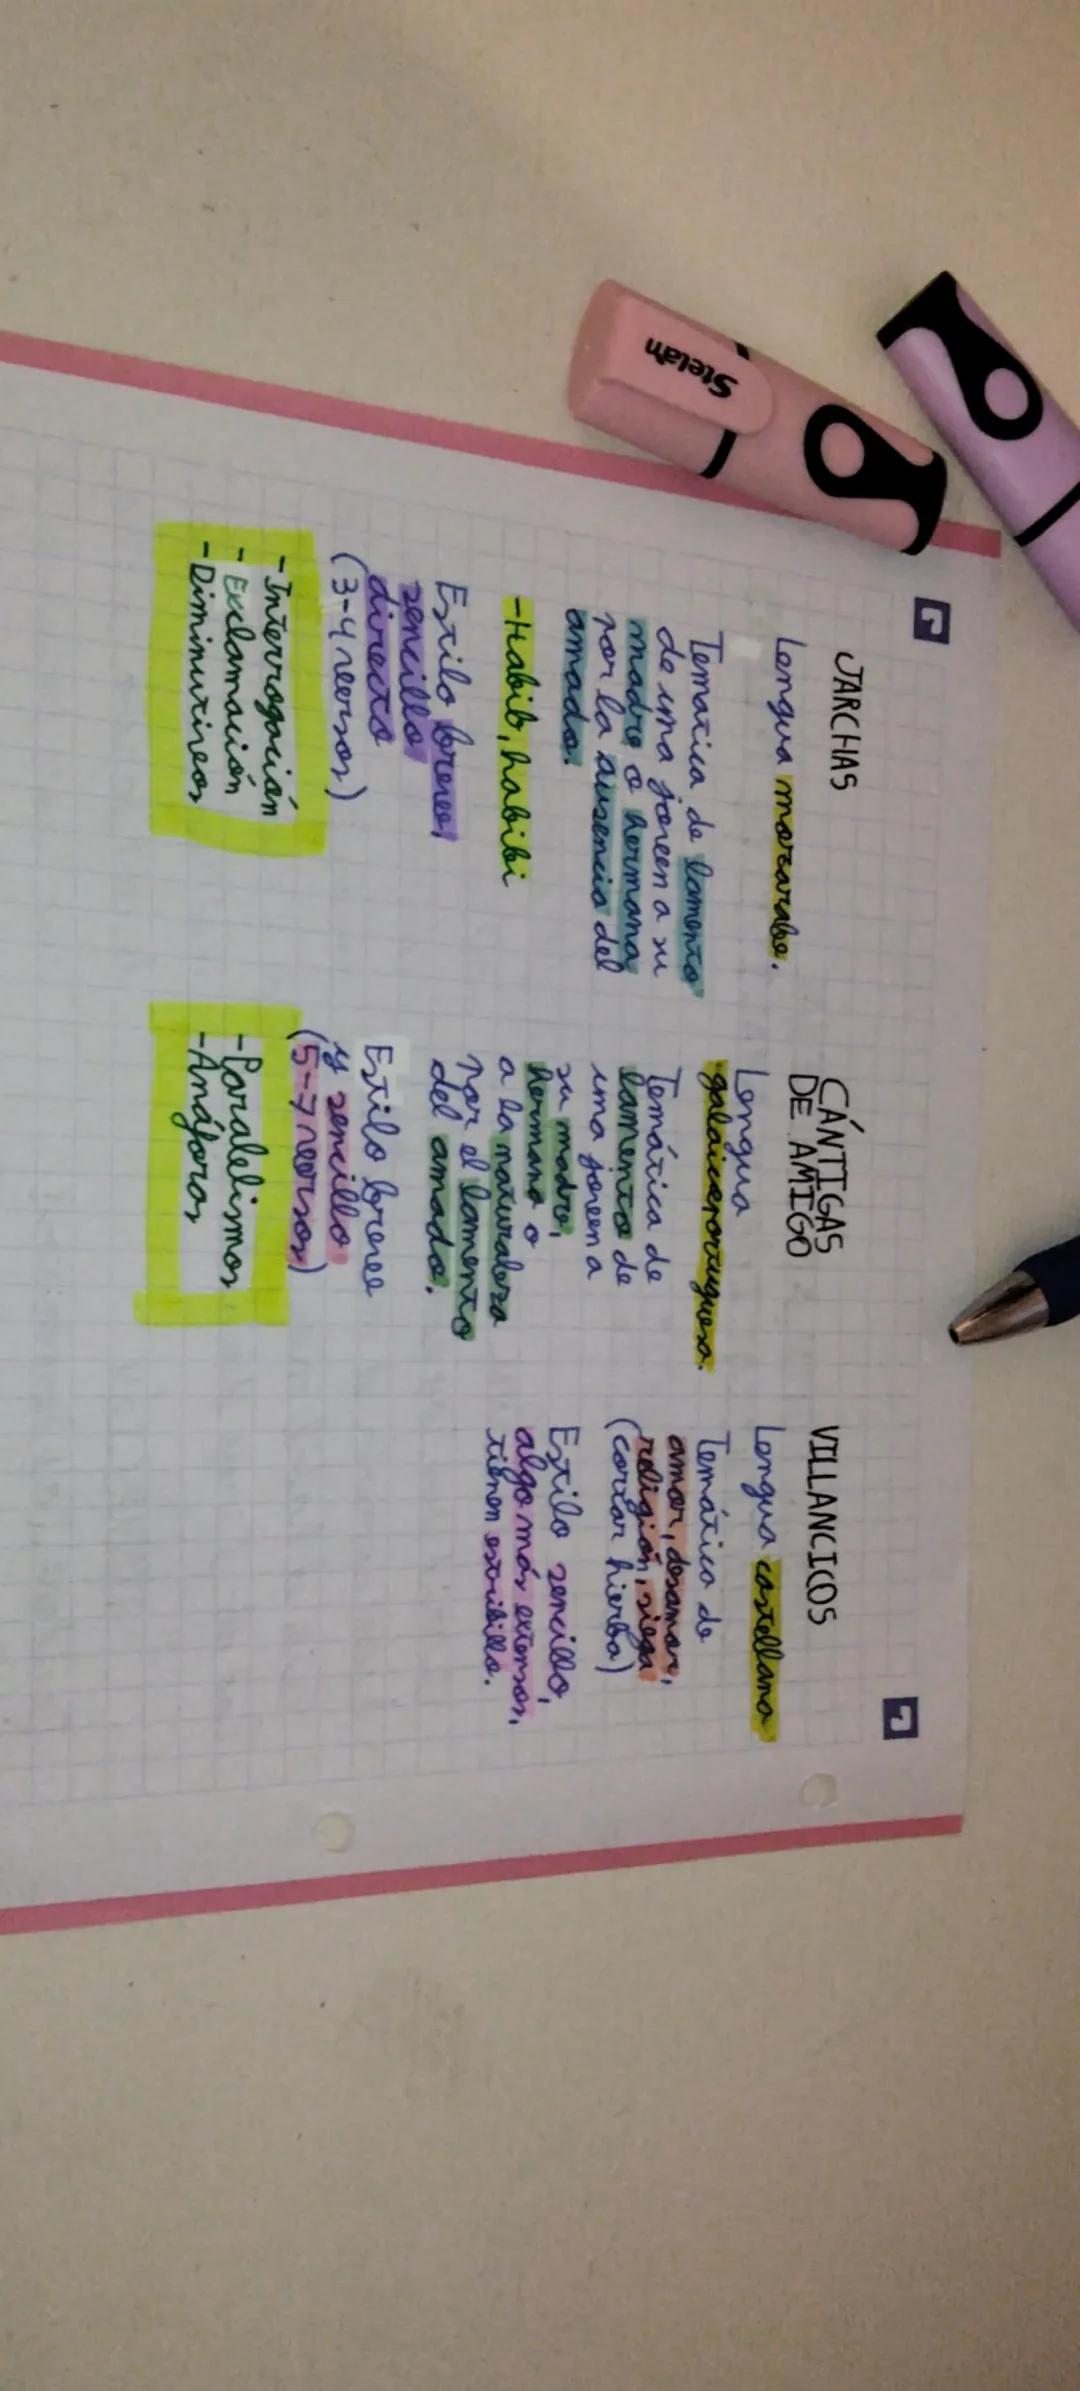 JARCHAS
Lengua mozarabe.
Tematica de lamento
de una joven a su
madre o hermana
por la ausencia del
amado.
-Habib, habibi
Estilo breve,
sencillo
directo
(3-4 versos)
-Interrogación
-Exclamación
-Diminutivos
CÁNTIGAS
DE AMIGO
Lengua
galaicoportuguesa.
Temática de
lamento de
una joven a
su madre,
hermana o
a la naturaleza
por el lamento
del amado.
Estilo breve
y sencillo
(5-7 versos)
-Paralelismos
-Anáforas
VILLANCICOS
Lengua castellana
Temática de
amor, desamor,
religión, siega
(cortar hierba)
Estilo sencillo,
algo más extensos,
tienen estribillo.
Stelah